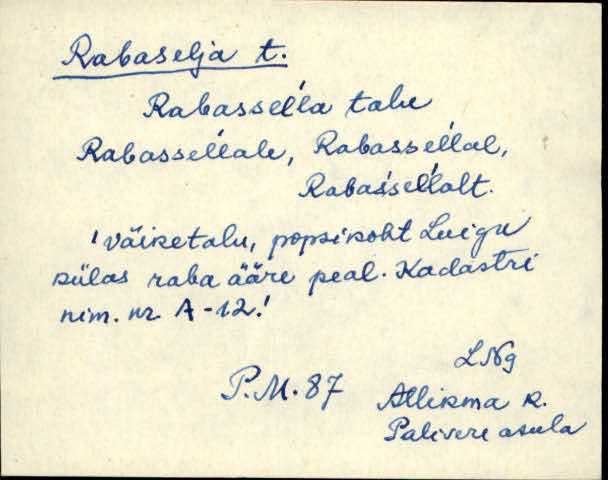 Rabaselja t.
Rabassella talu
Rabassellale, Rabassellal,
Rabassellalt.
! väiketalu, popsikoht Luigu
külas raba ääre peal. Kadastri
nim. nr A-12.!
LNg
P.M. 87 Allikma k.
Palivere asula